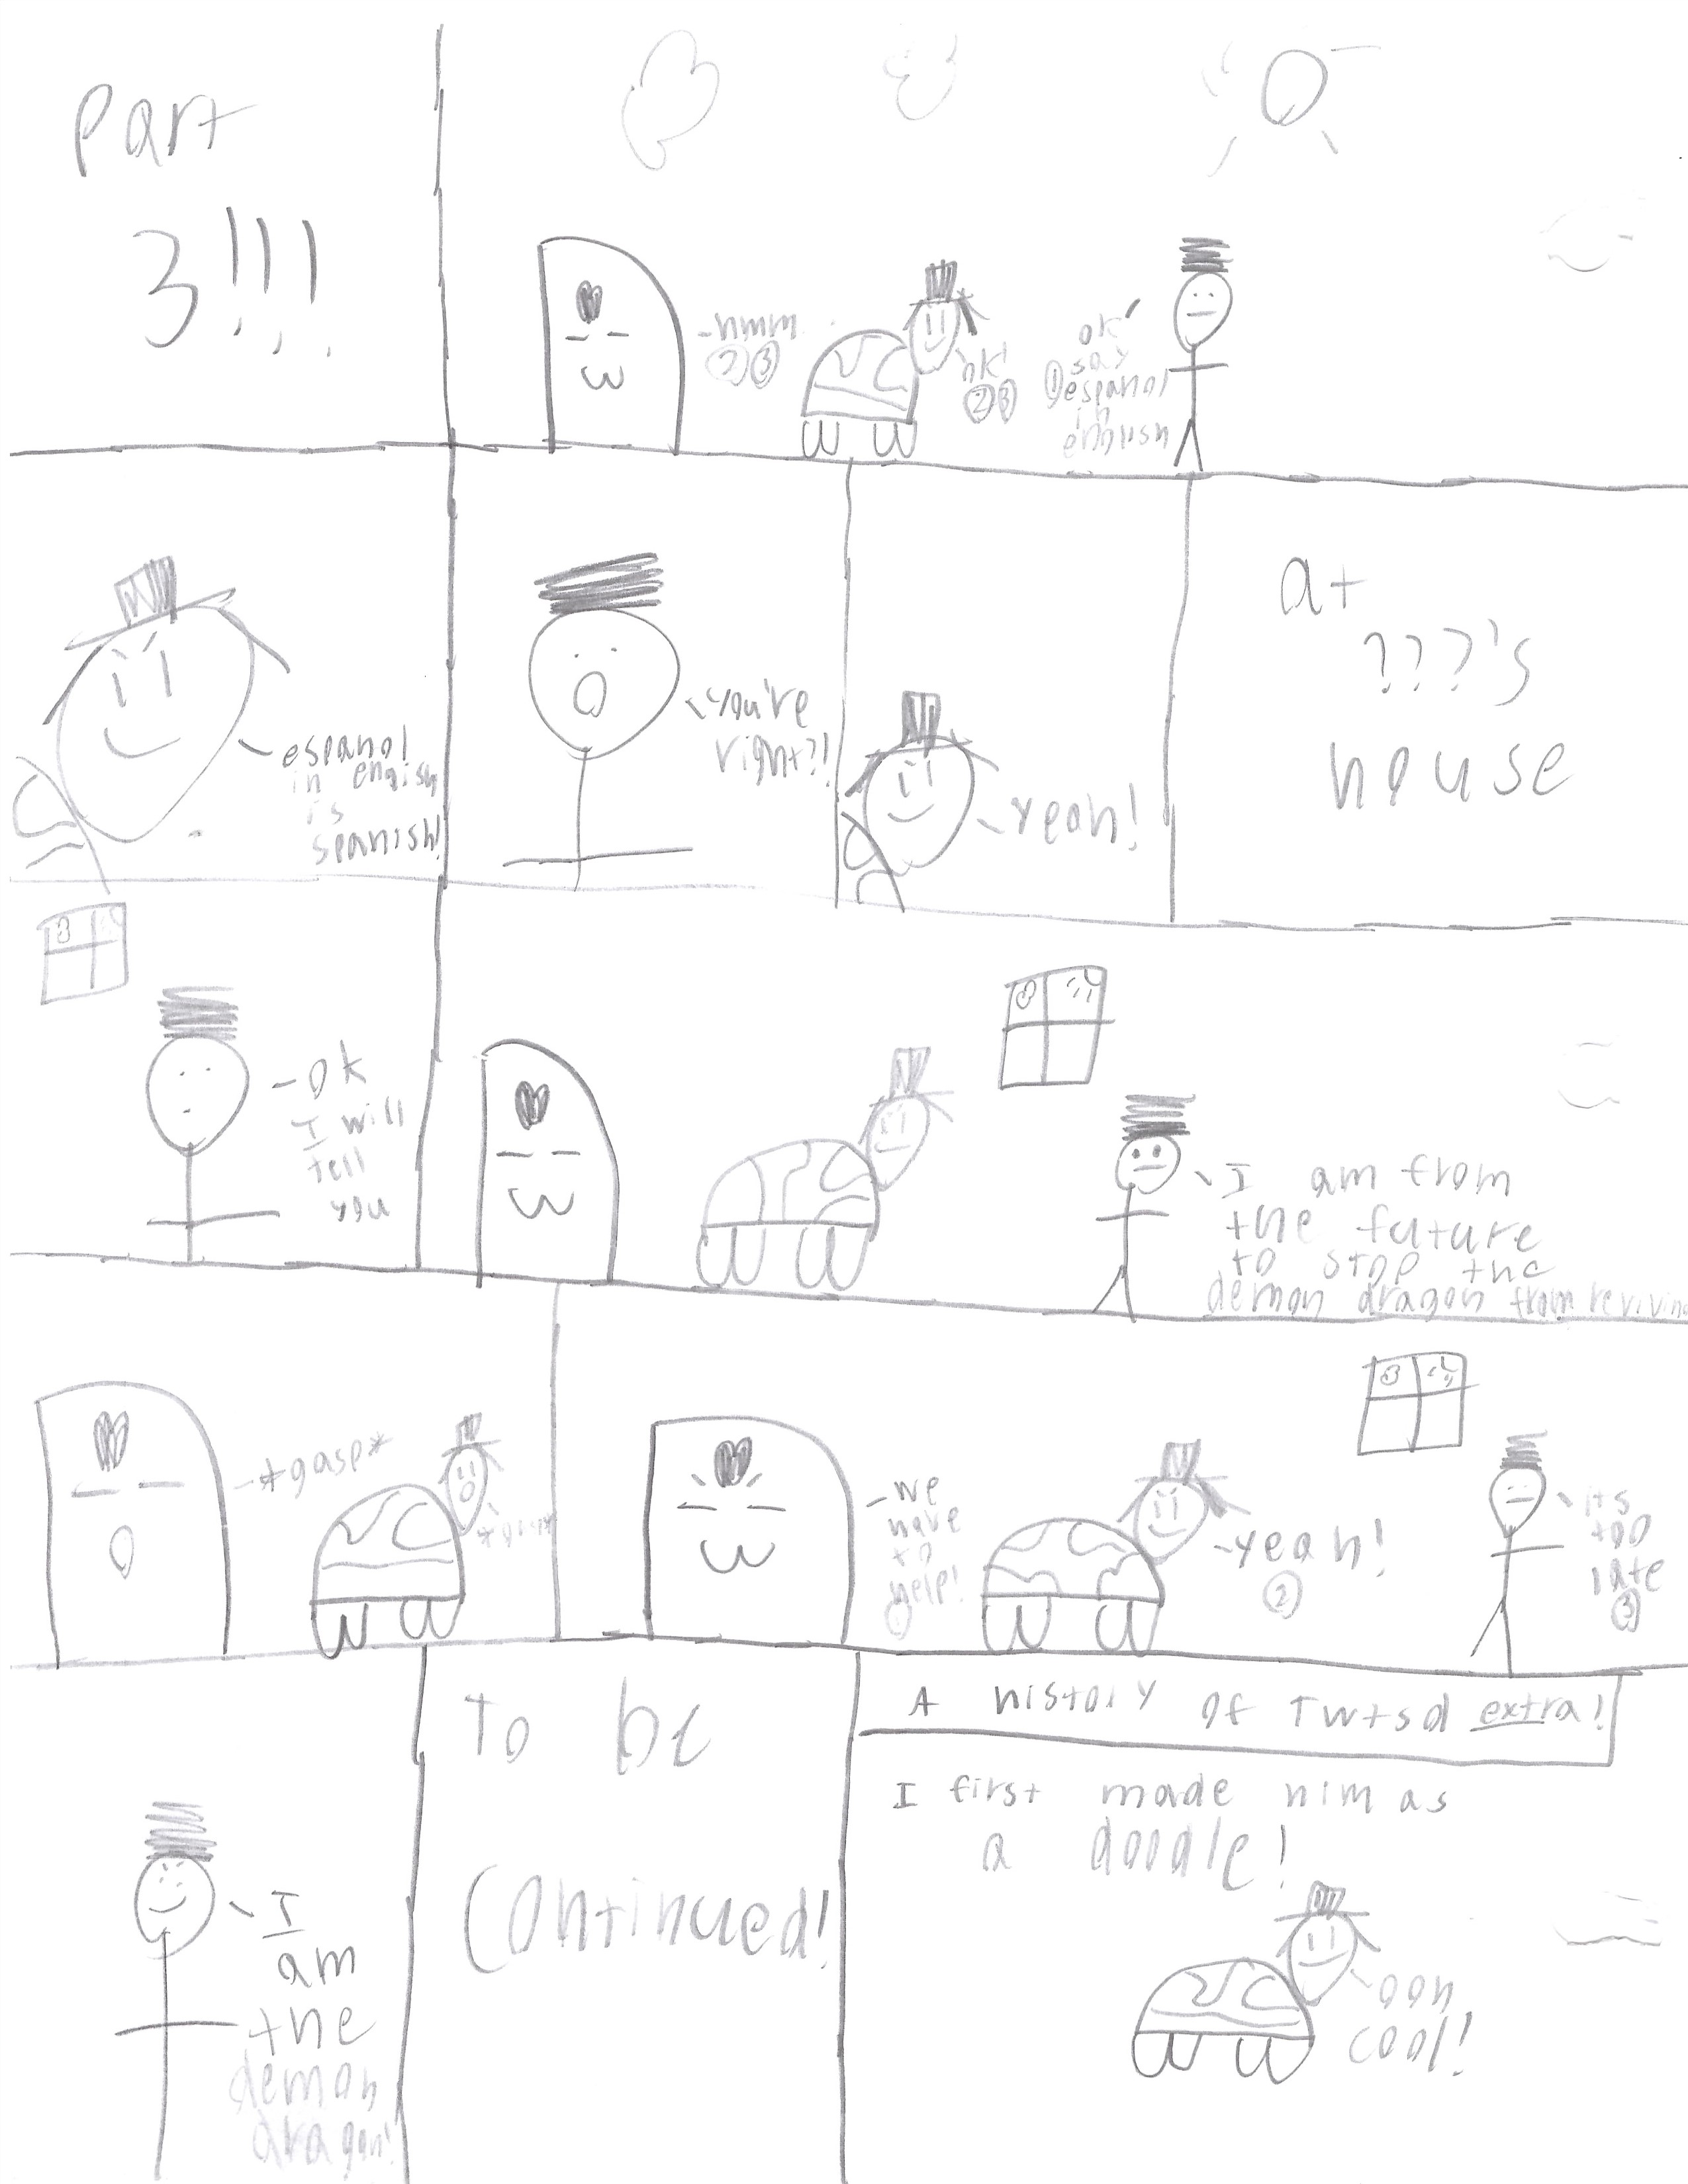 Part
3!!!
-hmm
② ③
ok!
② ③
ok
say
① espanol
in
english
espanol
in engish
is
spanish!
you're
right?!
yeah!
at
???'s
house
-ok
I will
tell
you
I am from
the future
to stop the
demon dragon from reviving
-*gasp*
*gasp*
we
have
to
help!
①
-yeah!
②
its
too
late
③
I
am
the
demon
dragon!
To be
continued!
A history of Twtsd extra!
I first made him as
a doodle!
ooh
cool!